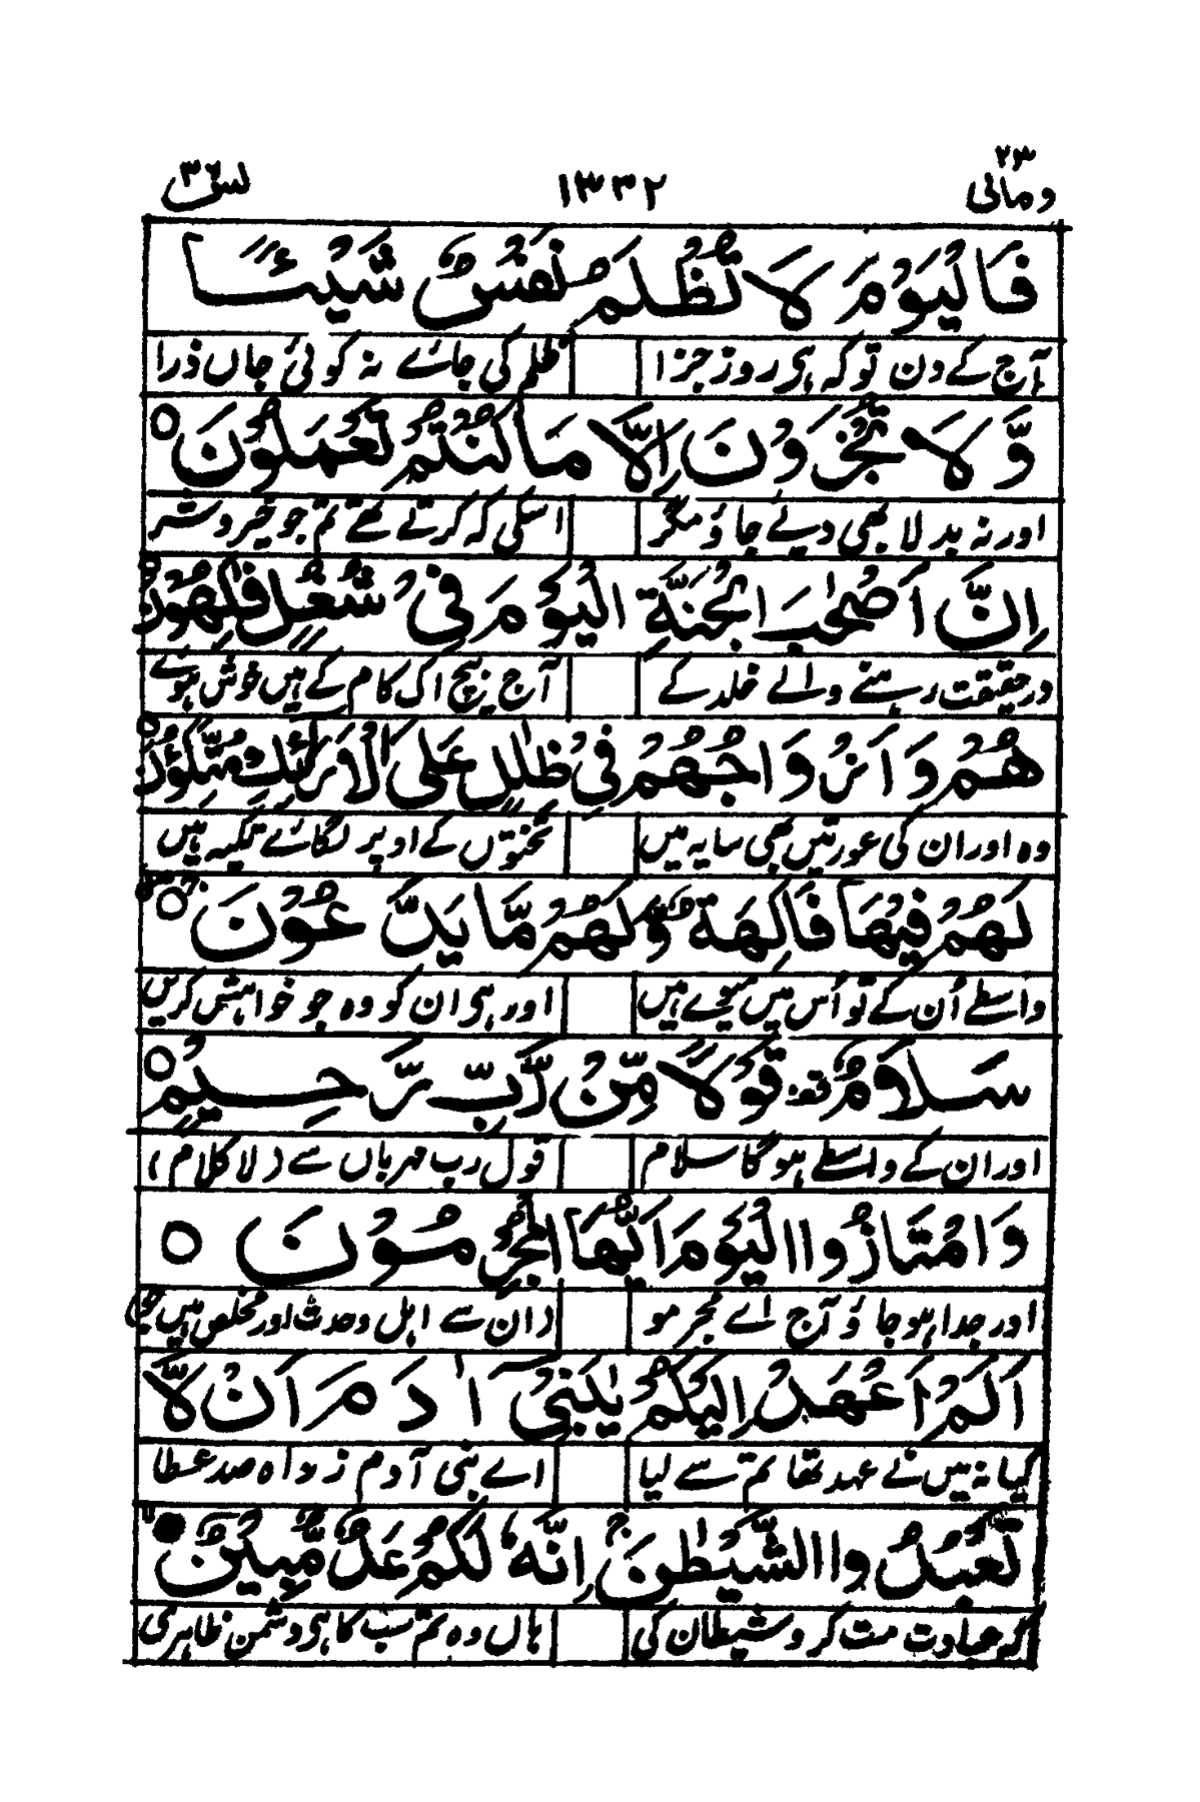 ومالی ۲۳ ۱۳۳۲ یٰسٓ ۳۶
فَالْيَوْمَ لَا تُظْلَمُ نَفْسٌ شَيْـًٔا
آج کے دن تو کہ ہی روز جزا ظلم کی جائے نہ کوئی جاں ذرا
وَّلَا تُجْزَوْنَ اِلَّا مَا كُنْتُمْ تَعْمَلُوْنَ ○
اور نہ بدلا بھی دیئے جاؤ مگر اسکی کہ کرتے تھے تم جو خیر و شر
اِنَّ اَصْحٰبَ الْجَنَّةِ الْيَوْمَ فِيْ شُغُلٍ فٰكِهُوْنَ ○
درحقیقت رہنے والے خلد کے آج بیچ اک کام کے ہیں خوش ہوئے
هُمْ وَاَزْوَاجُهُمْ فِيْ ظِلٰلٍ عَلَى الْاَرَآئِكِ مُتَّكِئُوْنَ ○
وہ اور ان کی عورتیں بھی سایہ میں تختوں کے اوپر لگائے تکیہ ہیں
لَهُمْ فِيْهَا فَاكِهَةٌ وَّلَهُمْ مَّا يَدَّعُوْنَ ○
واسطے اُن کے تو اُس میں میوے ہیں اور ہی ان کو وہ جو خواہش کریں
سَلَامٌ قف قَوْلًا مِّنْ رَّبٍّ رَّحِيْمٍ ○
اور ان کے واسطے ہوگا سلام قول رب مہرباں سے (لا کلام)
وَامْتَازُوا الْيَوْمَ اَيُّهَا الْمُجْرِمُوْنَ ○
اور جدا ہو جاؤ آج اے مجرمو (ان سے اہل وحدث اور مخلص ہیں
اَلَمْ اَعْهَدْ اِلَيْكُمْ يٰبَنِيْٓ اٰدَمَ اَنْ لَّا
کیا نہ میں نے عہد تھا تم سے لیا اے بنی آدم ز راہ صد عطا
تَعْبُدُوا الشَّيْطٰنَ ج اِنَّهٗ لَكُمْ عَدُوٌّ مُّبِيْنٌ ○
کہ عبادت مت کرو شیطان کی ہاں وہ تم سب کا ہی دشمن ظاہری